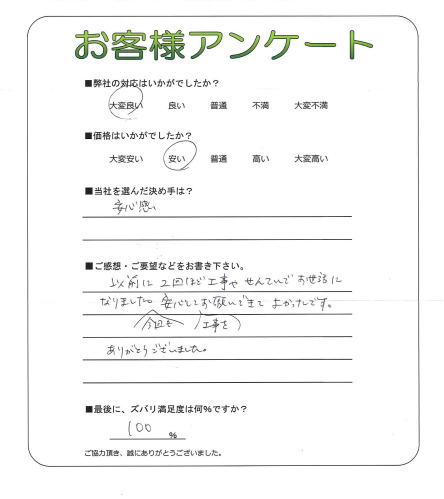 お客様アンケート
■弊社の対応はいかがでしたか？
大変良い　良い　普通　不満　大変不満
■価格はいかがでしたか？
大変安い　安い　普通　高い　大変高い
■当社を選んだ決め手は？
安心感
■ご感想・ご要望などをお書き下さい。
以前に 2回ほど工事や せんていで お世話に
なりました。安心してお願いできて よかったです。
今回も　工事を
ありがとうございました。
■最後に、ズバリ満足度は何%ですか？
100 %
ご協力頂き、誠にありがとうございました。